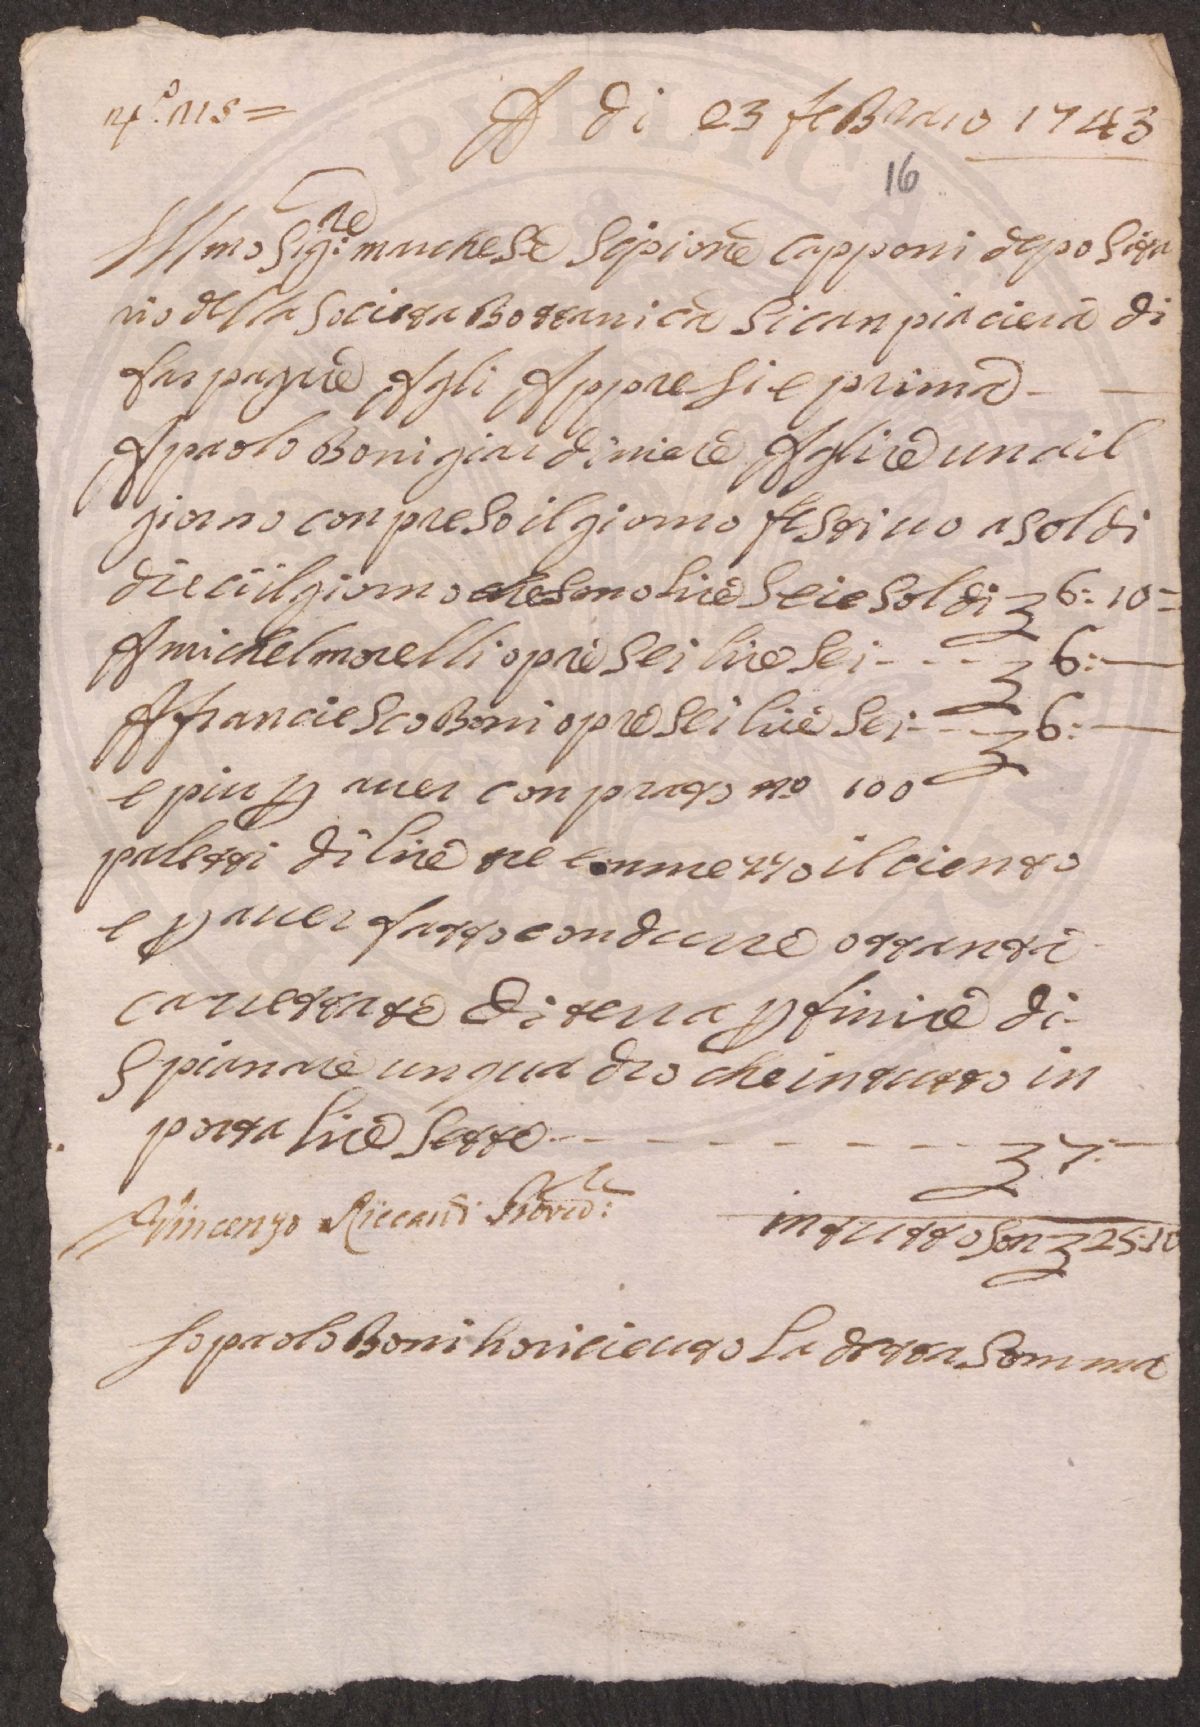 n.º 118=
A di 23 feBraio 1743
16
Illmo Sig:re marchese Scipione Capponi deposita
rio della Societa Bottanica Si canpiacierà di
far pagare Agli Appresi e prima
A paolo Boni giardiniere Aglire una il
giorno conpreso il giorno festiuo a soldi
dieci il giorno che sono lire Sei e Soldi 6: 10=
A michel morelli opre Sei lire Sei 6:
A franciesco Boni opre Sei lire Sei 6:
e piu p auer conprato no 100
paletti di lire tre e mmezzo il ciento
e p auer fatto condurre ottanta
carettate di terra p finire di
Spianare un quadro che in tutto in
porta lire Sette 7:
Vincenzo Riccardi Proved:re
in tutto Son 25:10
Io paolo Boni ho riceuto La detta Somma